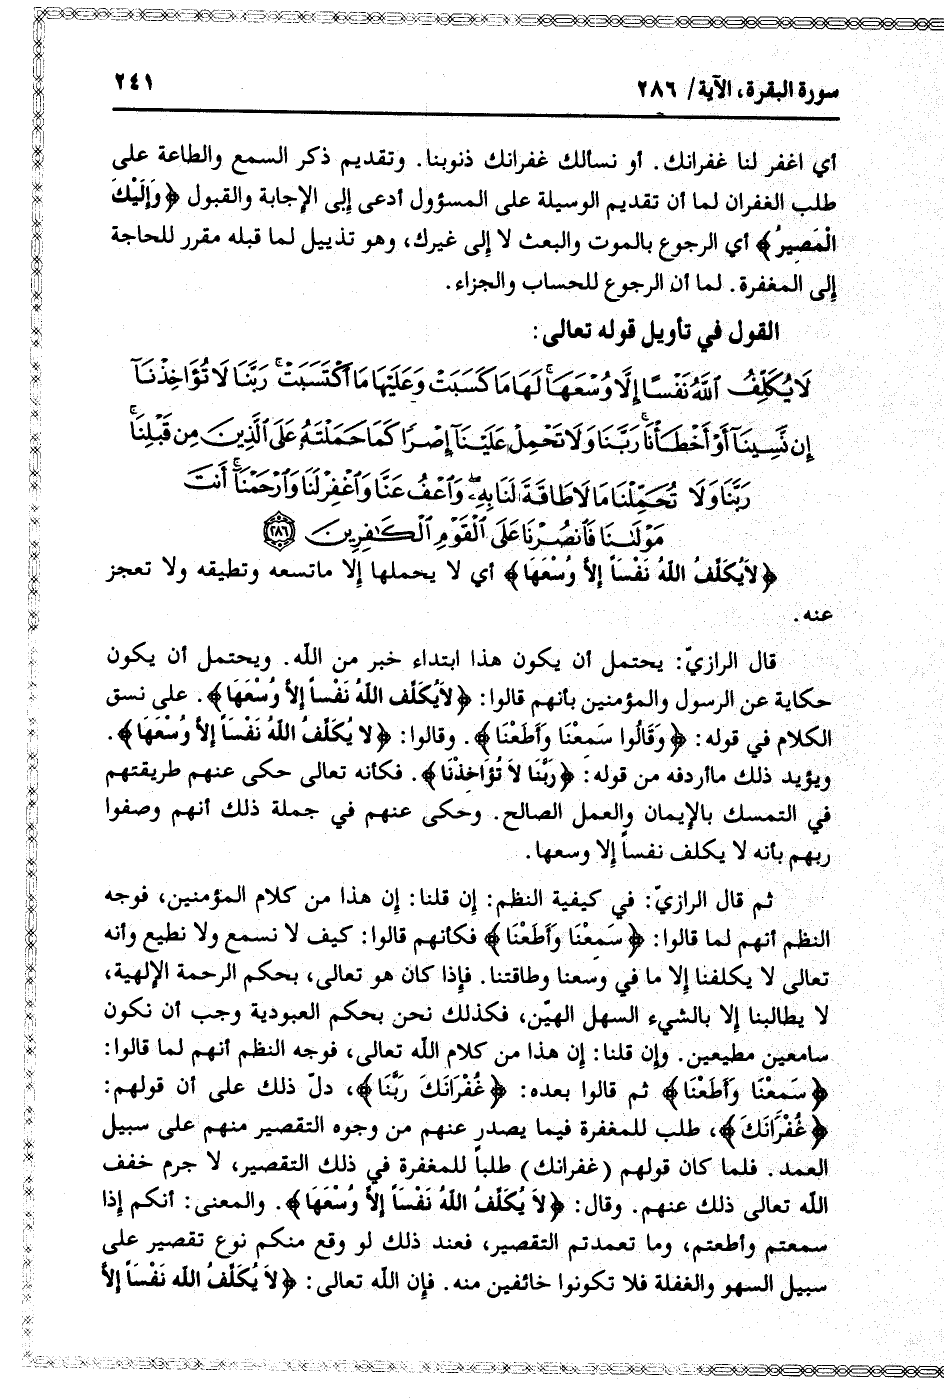 سورة البقرة، الآية/ ٢٨٦ ٢٤١
أي اغفر لنا غفرانك. أو نسألك غفرانك ذنوبنا. وتقديم ذكر السمع والطاعة على
طلب الغفران لما أن تقديم الوسيلة على المسؤول أدعى إلى الإجابة والقبول ﴿وَإِلَيْكَ
الْمَصِيرُ﴾ أي الرجوع بالموت والبعث لا إلى غيرك، وهو تذييل لما قبله مقرر للحاجة
إلى المغفرة. لما أن الرجوع للحساب والجزاء.
القول في تأويل قوله تعالى:
لَا يُكَلِّفُ ٱللَّهُ نَفْسًا إِلَّا وُسْعَهَا ۚ لَهَا مَا كَسَبَتْ وَعَلَيْهَا مَا ٱكْتَسَبَتْ ۗ رَبَّنَا لَا تُؤَاخِذْنَآ
إِن نَّسِينَآ أَوْ أَخْطَأْنَا ۚ رَبَّنَا وَلَا تَحْمِلْ عَلَيْنَآ إِصْرًا كَمَا حَمَلْتَهُۥ عَلَى ٱلَّذِينَ مِن قَبْلِنَا ۚ
رَبَّنَا وَلَا تُحَمِّلْنَا مَا لَا طَاقَةَ لَنَا بِهِۦ ۖ وَٱعْفُ عَنَّا وَٱغْفِرْ لَنَا وَٱرْحَمْنَآ ۚ أَنتَ
مَوْلَىٰنَا فَٱنصُرْنَا عَلَى ٱلْقَوْمِ ٱلْكَٰفِرِينَ ﴿٢٨٦﴾
﴿لاَيُكَلِّفُ اللهُ نَفْسَاً إلاَّ وُسْعَهَا﴾ أي لا يحملها إلا ماتسعه وتطيقه ولا تعجز
عنه.
قال الرازيّ: يحتمل أن يكون هذا ابتداء خبر من الله. ويحتمل أن يكون
حكاية عن الرسول والمؤمنين بأنهم قالوا: ﴿لاَيُكَلِّفُ اللهُ نَفْساً إلاَّ وُسْعَهَا﴾. على نسق
الكلام في قوله: ﴿وَقَالُوا سَمِعْنَا وأَطَعْنَا﴾. وقالوا: ﴿لا يُكَلِّفُ اللهُ نَفْسَاً إلاَّ وُسْعَهَا﴾.
ويؤيد ذلك ماأردفه من قوله: ﴿رَبَّنَا لاَ تُؤَاخِذْنَا﴾. فكأنه تعالى حكى عنهم طريقتهم
في التمسك بالإيمان والعمل الصالح. وحكى عنهم في جملة ذلك أنهم وصفوا
ربهم بأنه لا يكلف نفساً إلا وسعها.
ثم قال الرازيّ: في كيفية النظم: إن قلنا: إن هذا من كلام المؤمنين، فوجه
النظم أنهم لما قالوا: ﴿سَمِعْنَا وأَطَعْنَا﴾ فكأنهم قالوا: كيف لا نسمع ولا نطيع وأنه
تعالى لا يكلفنا إلا ما في وسعنا وطاقتنا. فإذا كان هو تعالى، بحكم الرحمة الإلهية،
لا يطالبنا إلا بالشيء السهل الهيّن، فكذلك نحن بحكم العبودية وجب أن نكون
سامعين مطيعين. وإن قلنا: إن هذا من كلام الله تعالى، فوجه النظم أنهم لما قالوا:
﴿سَمِعْنَا وَأَطَعْنَا﴾ ثم قالوا بعده: ﴿غُفْرَانَكَ رَبَّنَا﴾، دلّ ذلك على أن قولهم:
﴿غُفْرَانَكَ﴾، طلب للمغفرة فيما يصدر عنهم من وجوه التقصير منهم على سبيل
العمد. فلما كان قولهم (غفرانك) طلباً للمغفرة في ذلك التقصير، لا جرم خفف
الله تعالى ذلك عنهم. وقال: ﴿لاَ يُكَلِّفُ اللهُ نَفْسَاً إلاَّ وُسْعَهَا﴾. والمعنى: أنكم إذا
سمعتم وأطعتم، وما تعمدتم التقصير، فعند ذلك لو وقع منكم نوع تقصير على
سبيل السهو والغفلة فلا تكونوا خائفين منه. فإن الله تعالى: ﴿لاَ يُكَلِّفُ الله نَفْسَاً إلاَّ